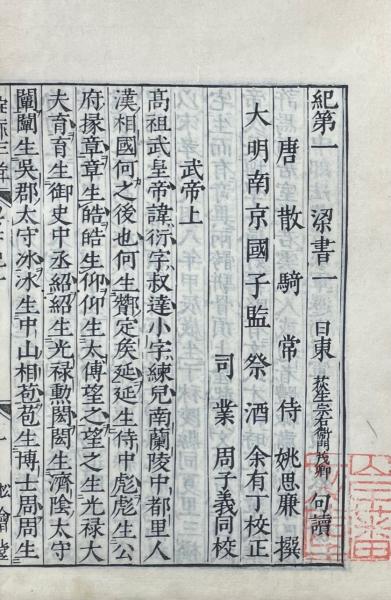 紀第一　梁書一　日東　荻生宗右衞門茂卿　句讀
唐散騎常侍姚思廉撰
大明南京國子監祭酒余有丁校正
司業周子義同校
武帝上
髙祖武皇帝諱衍字叔達小字練兒南蘭陵中都里人
漢相國何之後也何生酇定矦延延生侍中彪彪生公
府掾章章生皓皓生仰仰生太傅望之望之生光祿大
夫育育生御史中丞紹紹生光祿勳閎閎生濟陰太守
闡闡生吳郡太守冰冰生中山相苞苞生博士周周生
松會堂